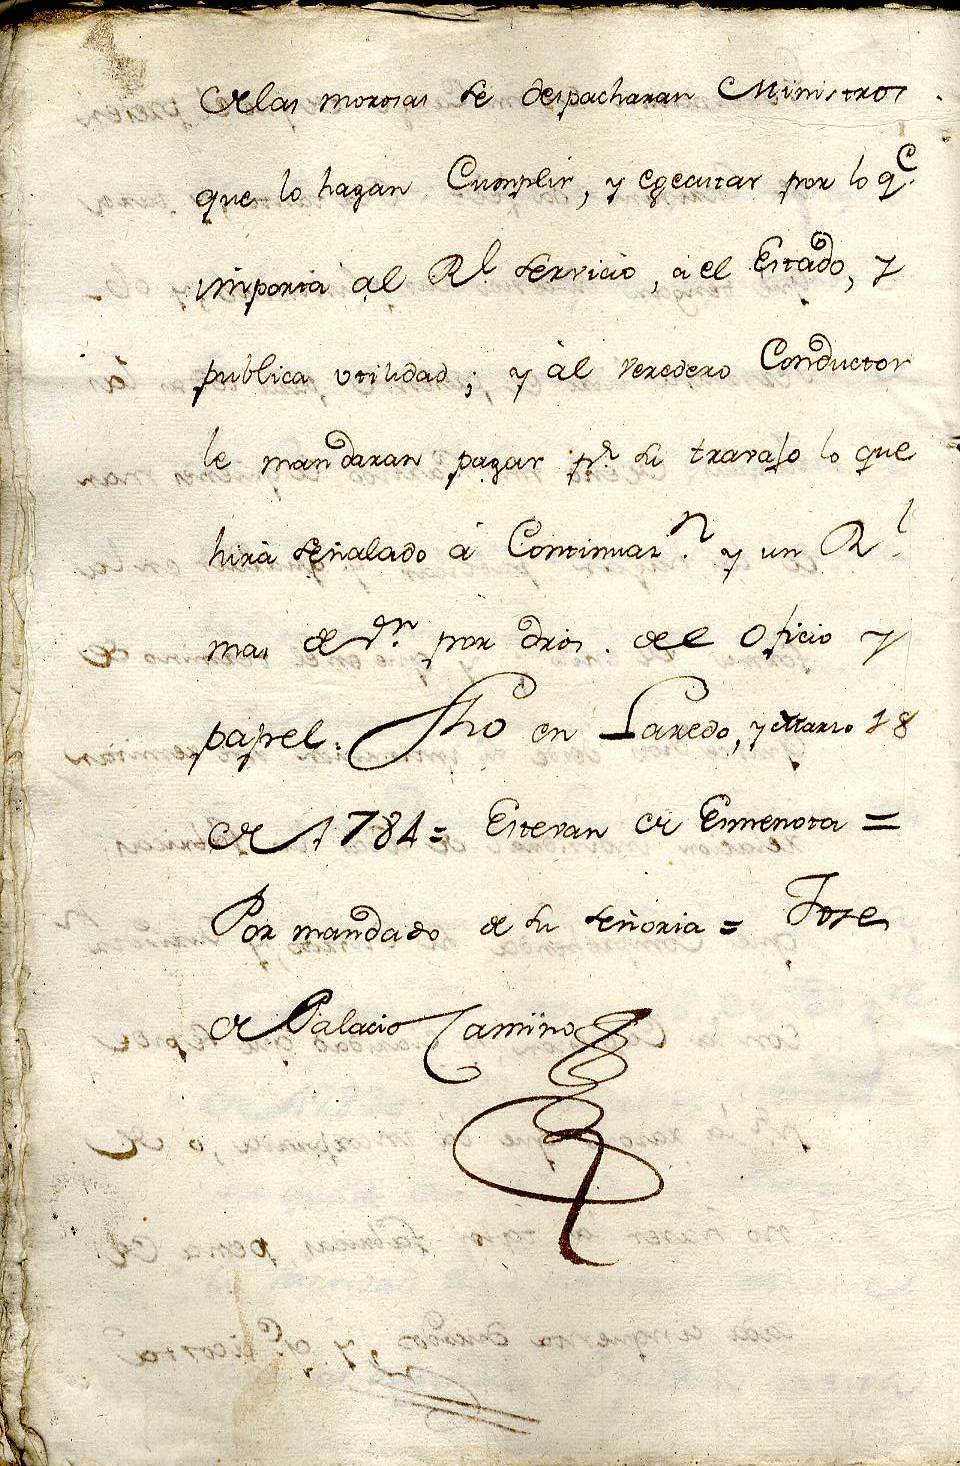 de las morosas se despacharan Ministros
que lo hagan Cumplir, y egecutar por lo q.e
importa al R.l servicio, à el Estado, y
publica utilidad; y àl Veredero Conductor
le mandaran pagar p.r su travajo lo que
hirà señalado à Continuaz.n y un R.l
mas de v.n por dros. de el Oficio y
papel. Fho en Laredo, y Marzo 18
de 1784 = Estevan de =
Por mandado de su señoria = Jose
de Palacio Camino